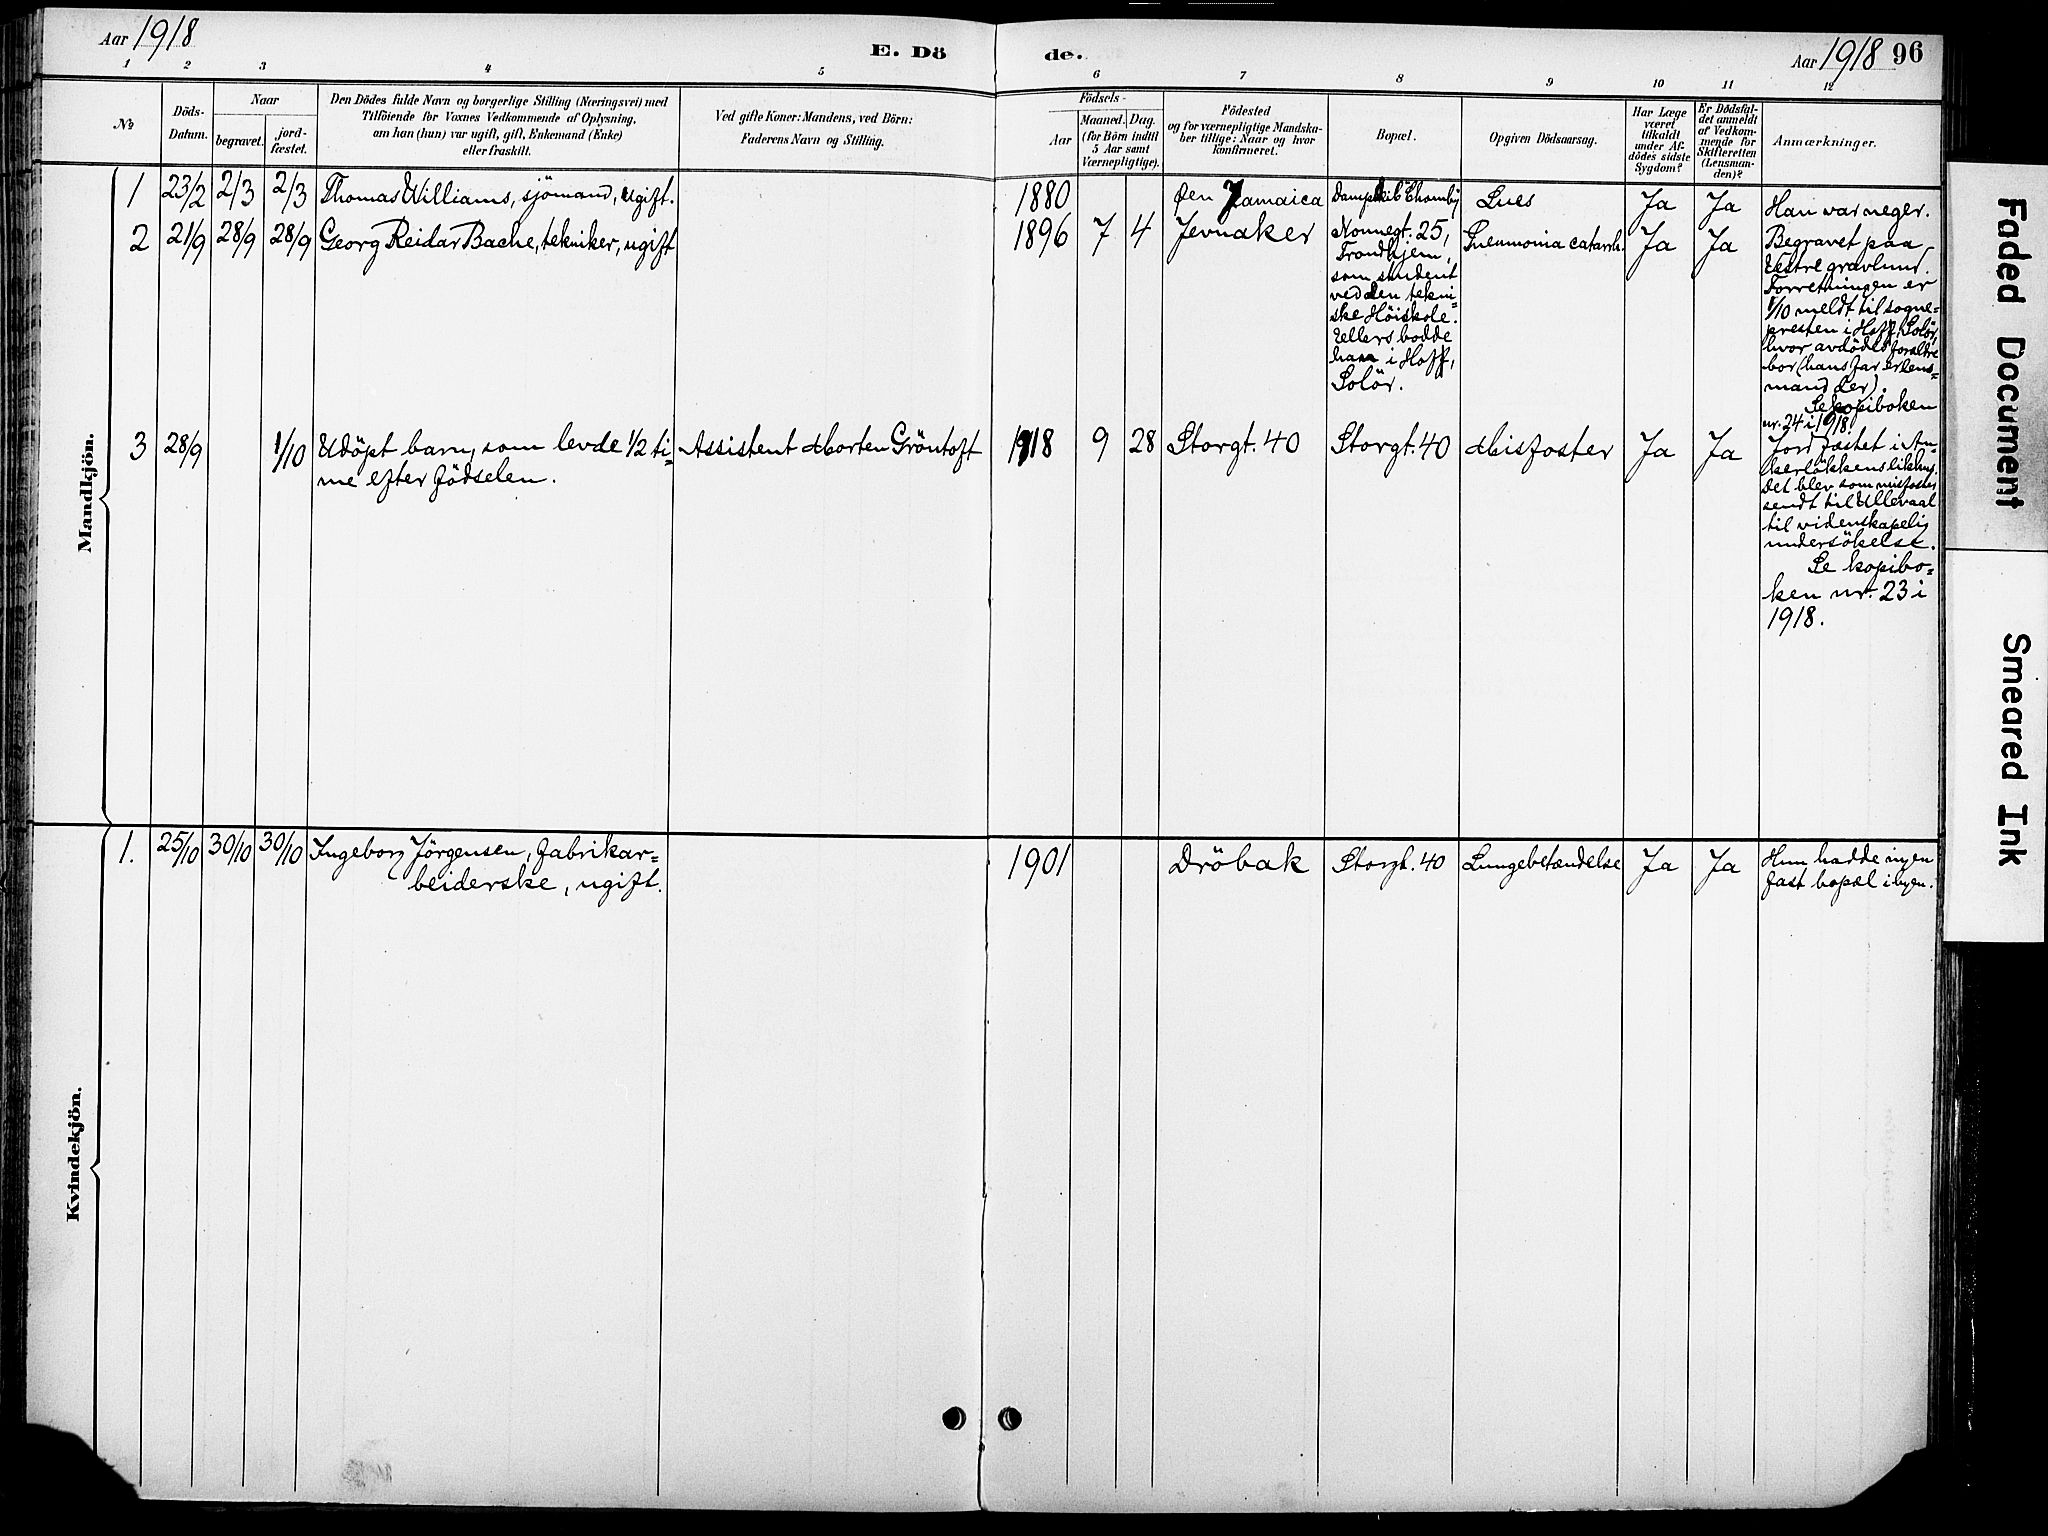 Aar 1918
E. Dö
de.
Aar 1918 96
1 2 3 4 5 6 7 8 9 10 11 12
№
Döds-
Datum.
Naar
begravet.
jord-
fæstet.
Den Dödes fulde Navn og borgerlige Stilling (Næringsvei) med
Tilföiende for Voxnes Vedkommende af Oplysning,
om han (hun) var ugift, gift, Enkemand (Enke)
eller fraskilt.
Ved gifte Koner: Mandens, ved Börn:
Faderens Navn og Stilling.
Födsels-
Aar
Maaned. Dag.
(for Börn indtil
5 Aar samt
Værnepligtige).
Födested
og for værnepligtige Mandska-
ber tillige: Naar og hvor
konfirmeret.
Bopæl.
Opgiven Dödsaarsag.
Har Læge
været
tilkaldt
under Af-
dödes sidste
Sygdom?
Er Dödsfal-
det anmeldt
af Vedkom-
mende for
Skifteretten
(Lensman-
den)?
Anmærkninger.
Mandkjön.
1 23/2 2/3 2/3 Thomas Williams, sjömand, ugift.
1880 Øen Jamaica
Lues Ja Ja Han var neger.
2 21/9 28/9 28/9 Georg Reidar Bache, tekniker, ugift
1896 7 4 Jevnaker
Nonnegt. 25,
Trondhjem,
som student
ved den tekni=
ske Höiskole.
Ellers bodde
han i Hoff,
Solör.
Pneumonia catarrh. Ja Ja
Begravet paa
Vestre gravlund.
Forretningen er
1/10 meldt til sogne=
presten i Hoff, Solör,
hvor avdödes foreldre
bor (hans far er lens=
mand der).
Se kopiboken
nr. 24 i 1918.
3 28/9 1/10 Udöpt barn, som levde 1/2 ti=
me efter födselen.
Assistent Morten Gröntoft
1918 9 28 Storgt. 40 Storgt. 40 Misfoster Ja Ja
Jordfæstet i An=
kerlökkens likhus.
Det blev som misfoster
sendt til Ullevaal
til videnskapelig
undersökelse.
Se kopibo=
ken nr. 23 i
1918.
Kvindekjön.
1. 25/10 30/10 30/10 Ingeborg Jörgensen, fabrikar=
beiderske, ugift.
1901 Dröbak Storgt. 40 Lungebetændelse Ja Ja
Hun hadde ingen
fast bopæl i byen.
Faded Document
Smeared Ink